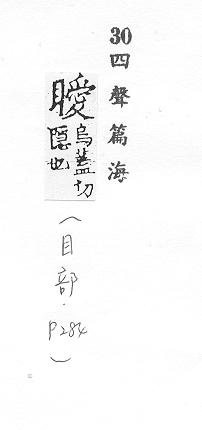 30 四聲篇海
瞹 烏蓋切
隱也
(目部.P284)